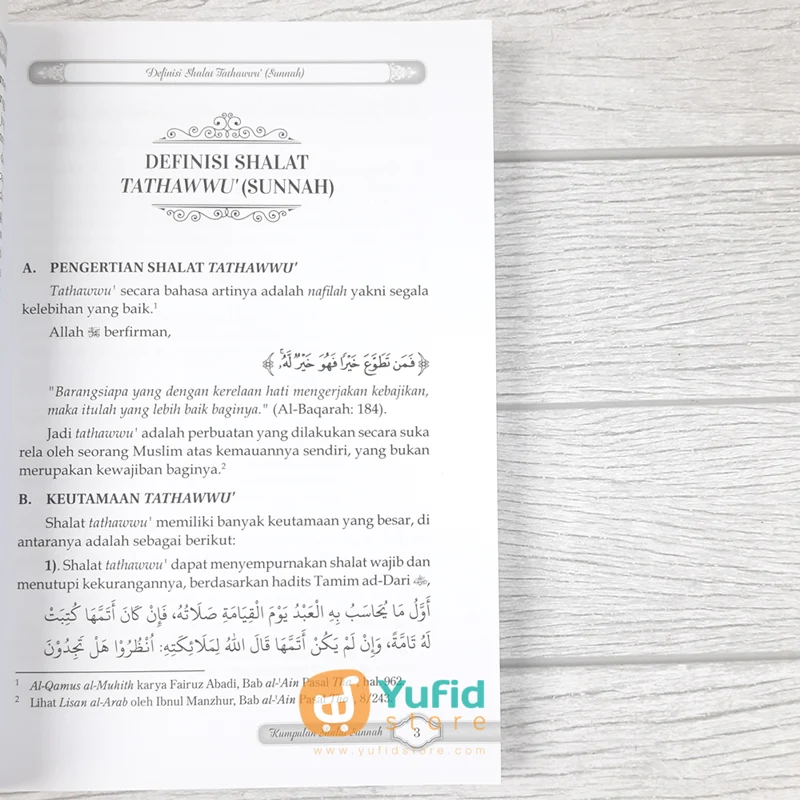 Definisi Shalat Tathawwu' (Sunnah)
DEFINISI SHALAT
TATHAWWU' (SUNNAH)
A. PENGERTIAN SHALAT TATHAWWU'
Tathawwu' secara bahasa artinya adalah nafilah yakni segala
kelebihan yang baik.¹
Allah ﷻ berfirman,
﴿ فَمَن تَطَوَّعَ خَيْرًا فَهُوَ خَيْرٌ لَّهُۥ ۚ ﴾
"Barangsiapa yang dengan kerelaan hati mengerjakan kebajikan,
maka itulah yang lebih baik baginya." (Al-Baqarah: 184).
Jadi tathawwu' adalah perbuatan yang dilakukan secara suka
rela oleh seorang Muslim atas kemauannya sendiri, yang bukan
merupakan kewajiban baginya.²
B. KEUTAMAAN TATHAWWU'
Shalat tathawwu' memiliki banyak keutamaan yang besar, di
antaranya adalah sebagai berikut:
1). Shalat tathawwu' dapat menyempurnakan shalat wajib dan
menutupi kekurangannya, berdasarkan hadits Tamim ad-Dari,
أَوَّلُ مَا يُحَاسَبُ بِهِ الْعَبْدُ يَوْمَ الْقِيَامَةِ صَلَاتُهُ، فَإِنْ كَانَ أَتَمَّهَا كُتِبَتْ
لَهُ تَامَّةً، وَإِنْ لَمْ يَكُنْ أَتَمَّهَا قَالَ اللهُ لِمَلَائِكَتِهِ: اُنْظُرُوْا هَلْ تَجِدُوْنَ
¹ Al-Qamus al-Muhith karya Fairuz Abadi, Bab al-'Ain Pasal Tha', hal 962.
² Lihat Lisan al-Arab oleh Ibnul Manzhur, Bab al-'Ain Pasal Tha', 8/243.
Kumpulan Shalat Sunnah 3
Yufid
store
www.yufidstore.com